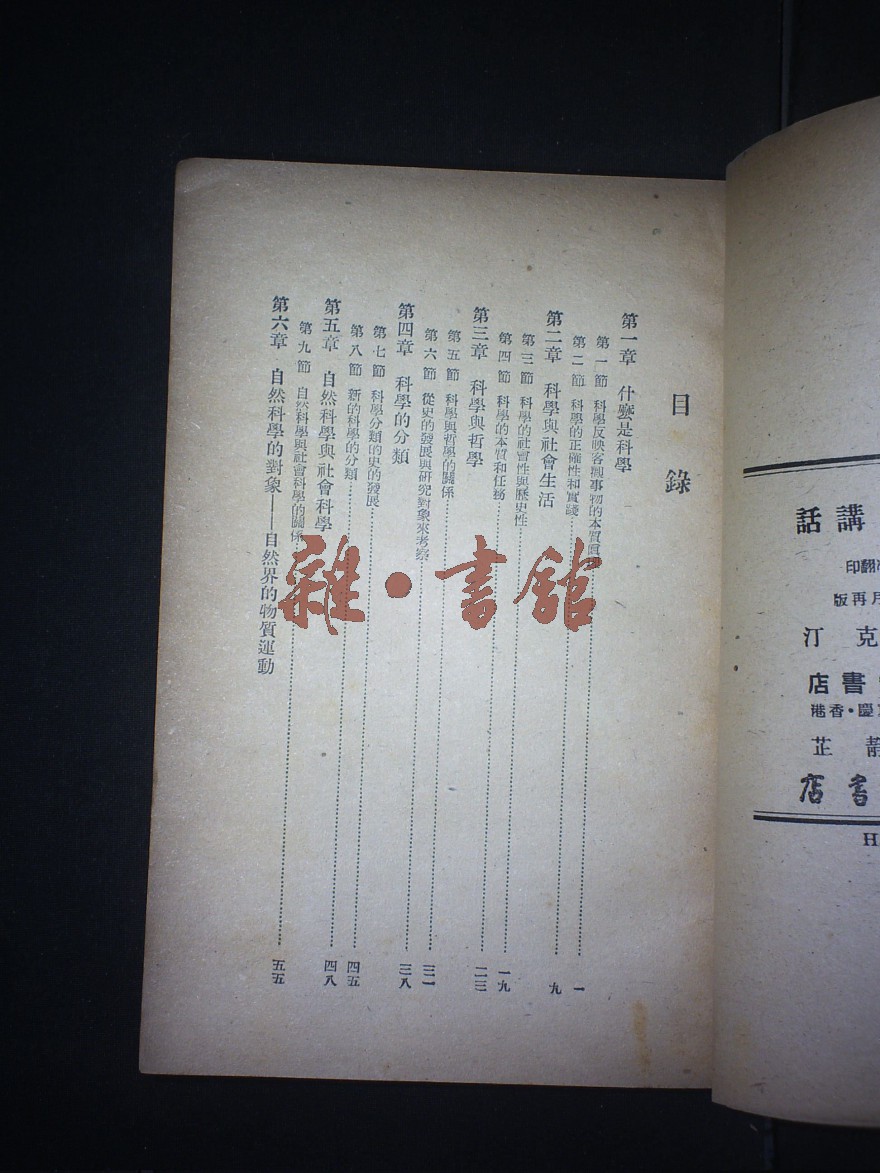 目錄
第一章 什麼是科學
第一節 科學反映客觀事物的本質……一
第二節 科學的正確性和實踐……九
第二章 科學與社會生活
第三節 科學的社會性與歷史性……一九
第四節 科學的本質和任務……二三
第三章 科學與哲學
第五節 科學與哲學的關係……三一
第六節 從史的發展與研究對象來考察……三八
第四章 科學的分類
第七節 科學分類的史的發展……四五
第八節 新的科學的分類……四八
第五章 自然科學與社會科學
第九節 自然科學與社會科學的關係……五五
第六章 自然科學的對象——自然界的物質運動
雜·書館
講話
翻印
月再版
克汀
書店
慶·香港
芷
書店
H